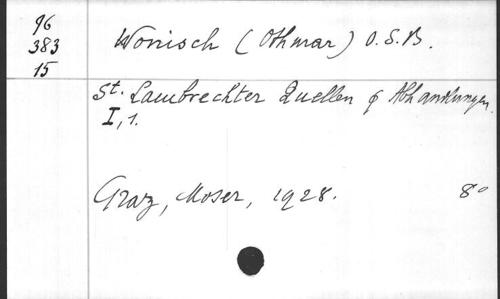 96
383
15
Wonisch (Othmar) O.S.B.
St. Lambrechter Quellen & Abhandlungen.
I, 1.
Graz, Moser, 1928. 8°